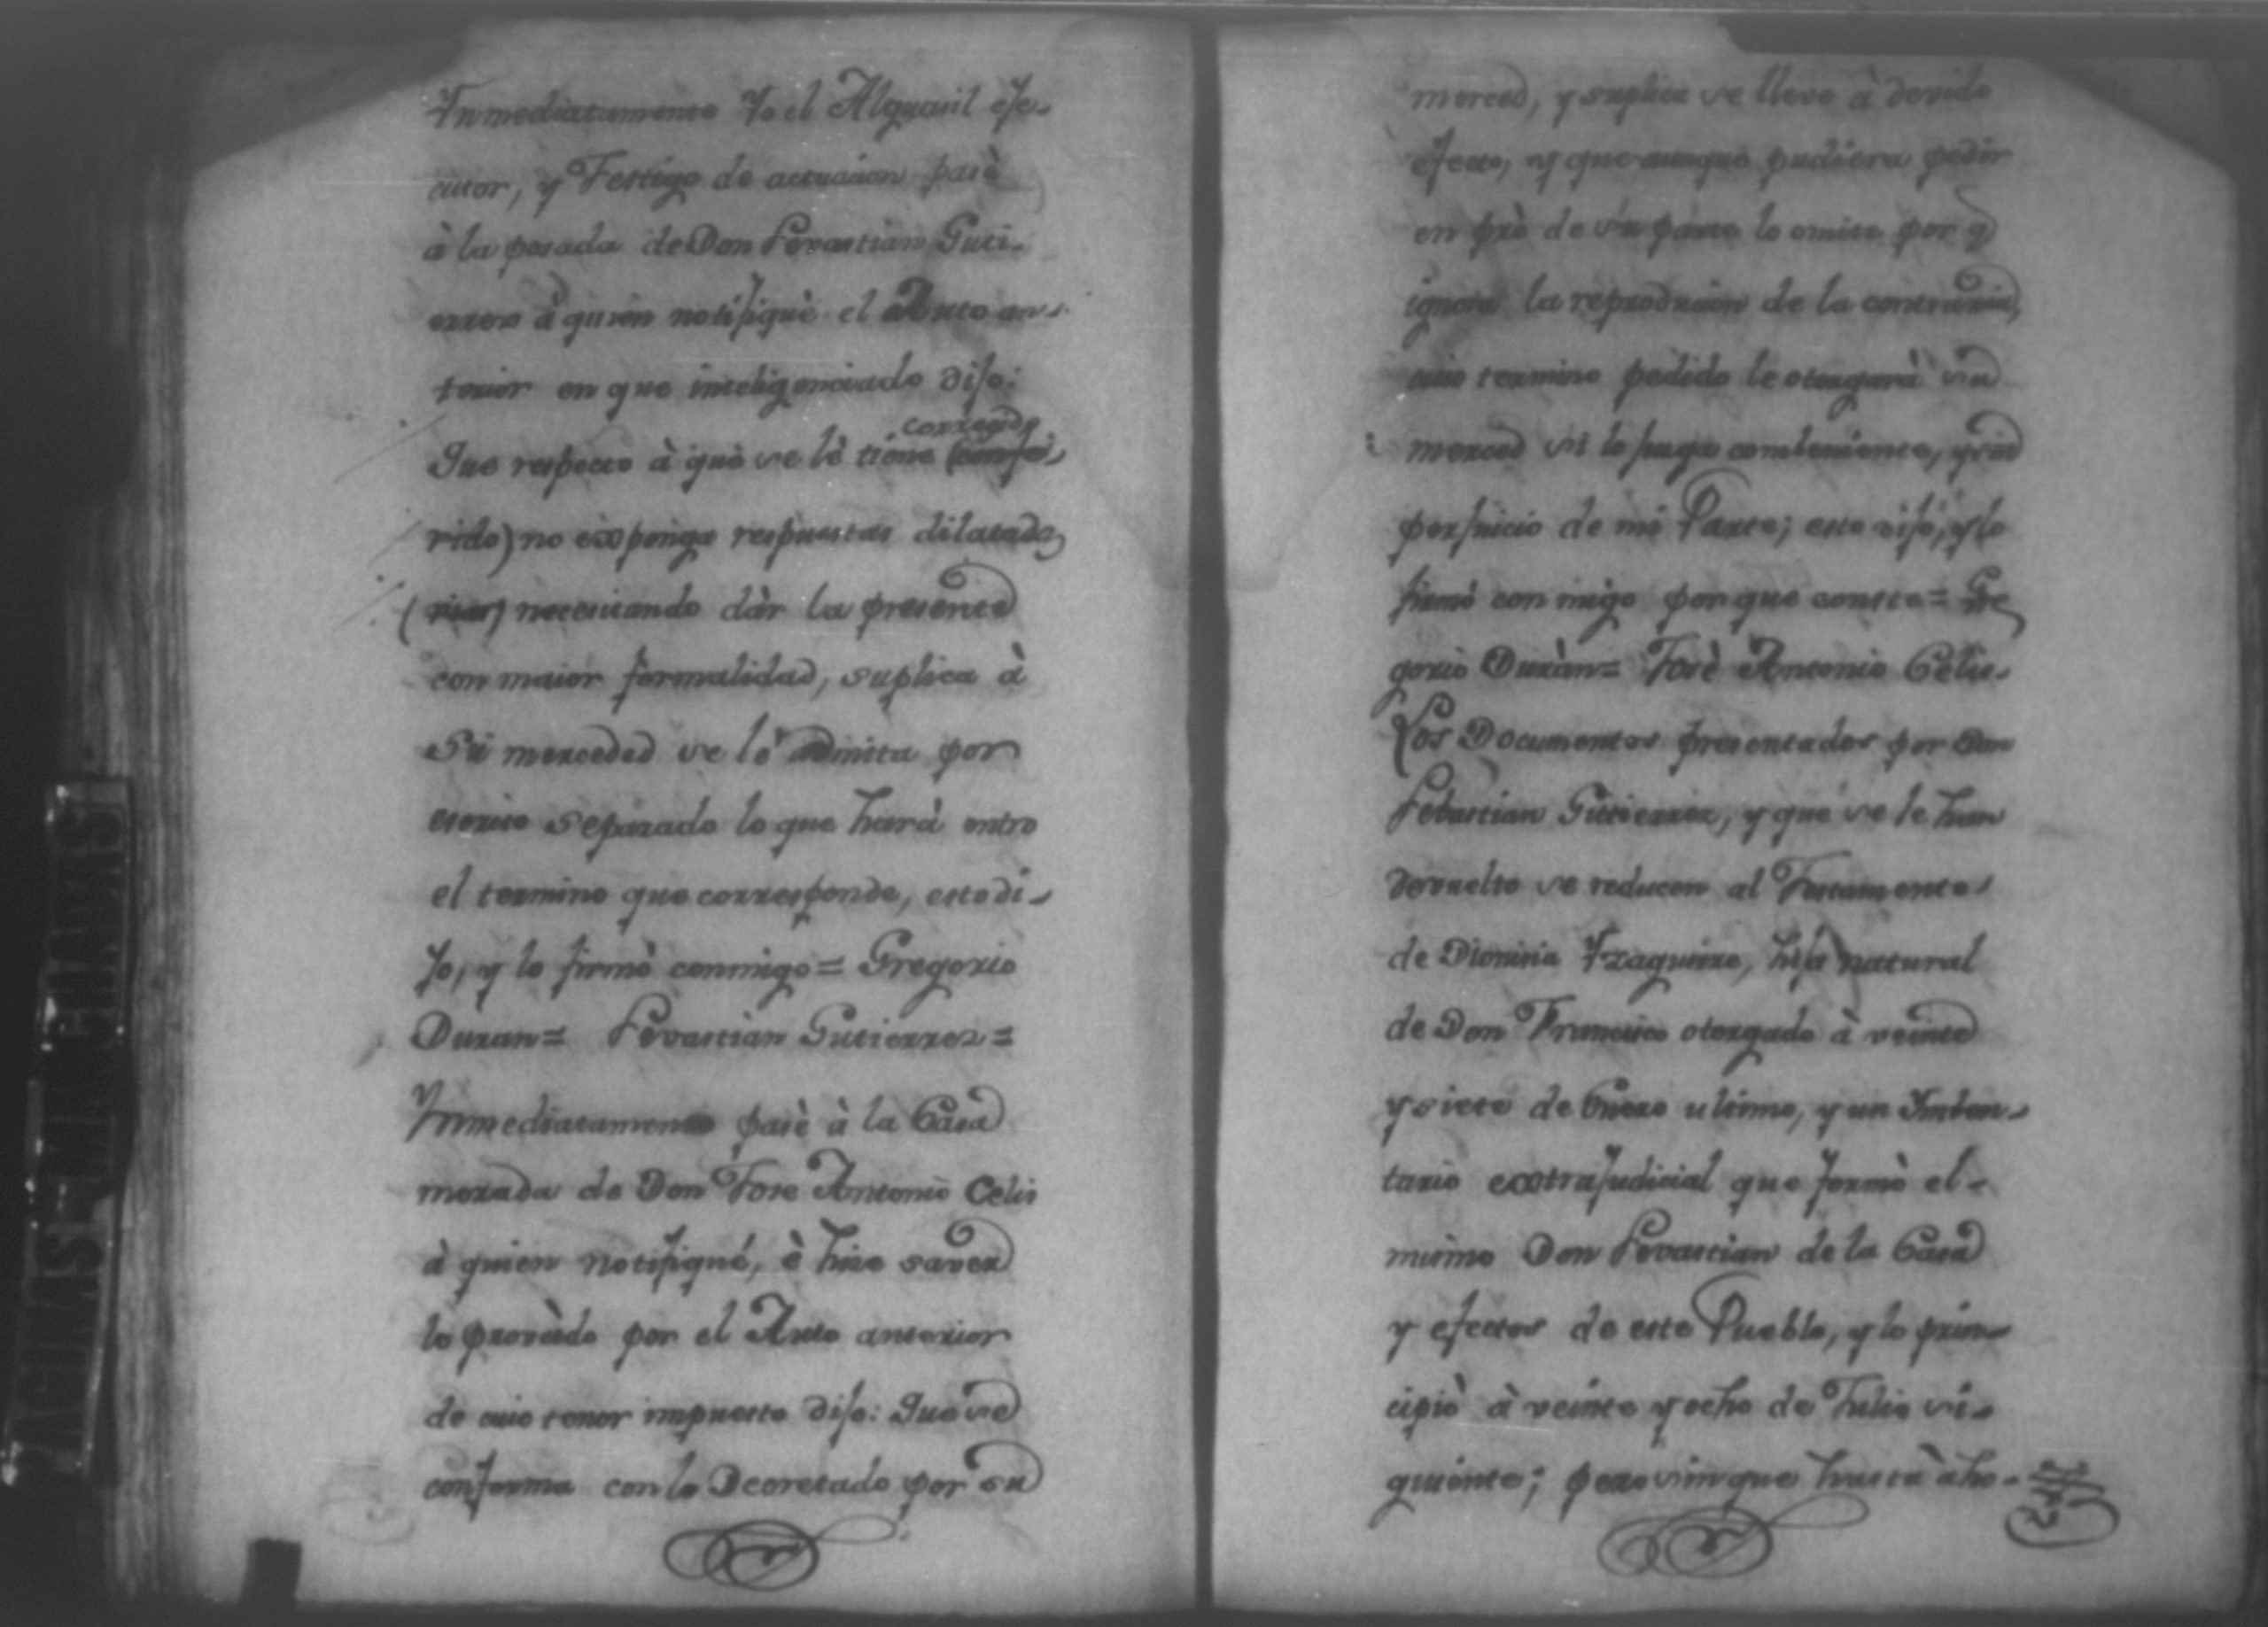 Ynmediatamente Yo el Alguasil eje-
cutor, y Testigo de actuacion pasè
à la posada de Don Sevastian Guti-
errez à quien notifiquè el Auto an-
terior en que inteligenciado dijo:
corregido
Que respecto à què se lè tiene (confe-
rido) no exponga respuestas dilatada
necesitando dàr la presente
con maior formalidad, suplica à
Su merceded se lè admita por
escrito separado lo que harà entro
el termino que corresponde, esto di-
jo, y lo firmò conmigo = Gregorio
Duran = Sevastian Gutierrez =
Ynmediatamente pasè à la Casa
morada de Don Josè Antonio Celis
à quien notifiqué, è hise saver
lo proveìdo por el Auto anterior
de cuio tenor impuesto dijo: Que se
conforma con lo Decretado por su
merced, y suplica se lleve à devido
efecto, y que aunque pudiera pedir
en prò de su parte lo omite por q
ignora la reproducion de la contraria,
cuio termino pedido le otorgarà su
merced si lo juzga combeniente, y sin
perjuicio de mi Parte; esto dijo, y lo
firmò con migo por que conste = Gre
gorio Duràn = Josè Antonio Celis-
Los Documentos presentados por Don
Sebastian Gutierrez, y que se le han
devuelto se reducen al Testamento
de Dionisia Yzaguirre, hija natural
de Don Francisco otorgado à veinte
y siete de Enero ultimo, y un Ymben-
tario extrajudicial que formò el-
mismo Don Sevastian de la Casa
y efectos de este Pueblo, y lo prin-
cipiò à veinte y ocho de Julio si-
guiente; pero sin que hasta aho-